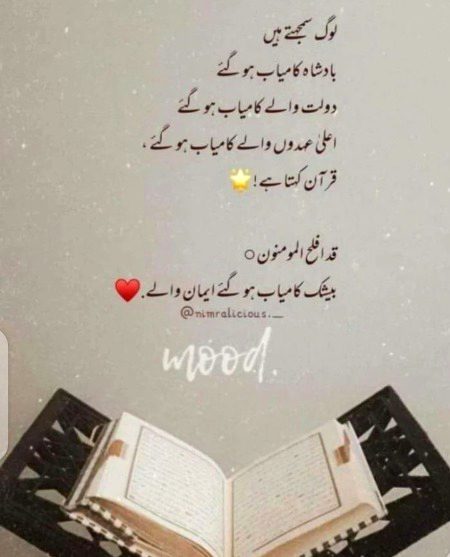 لوگ سمجھتے ہیں
بادشاہ کامیاب ہو گئے
دولت والے کامیاب ہو گئے
اعلیٰ عہدوں والے کامیاب ہو گئے ،
قرآن کہتا ہے ! 🌟
قد افلح المومنون ○
بیشک کامیاب ہو گئے ایمان والے . ♥️
@nimralicious._
mood.